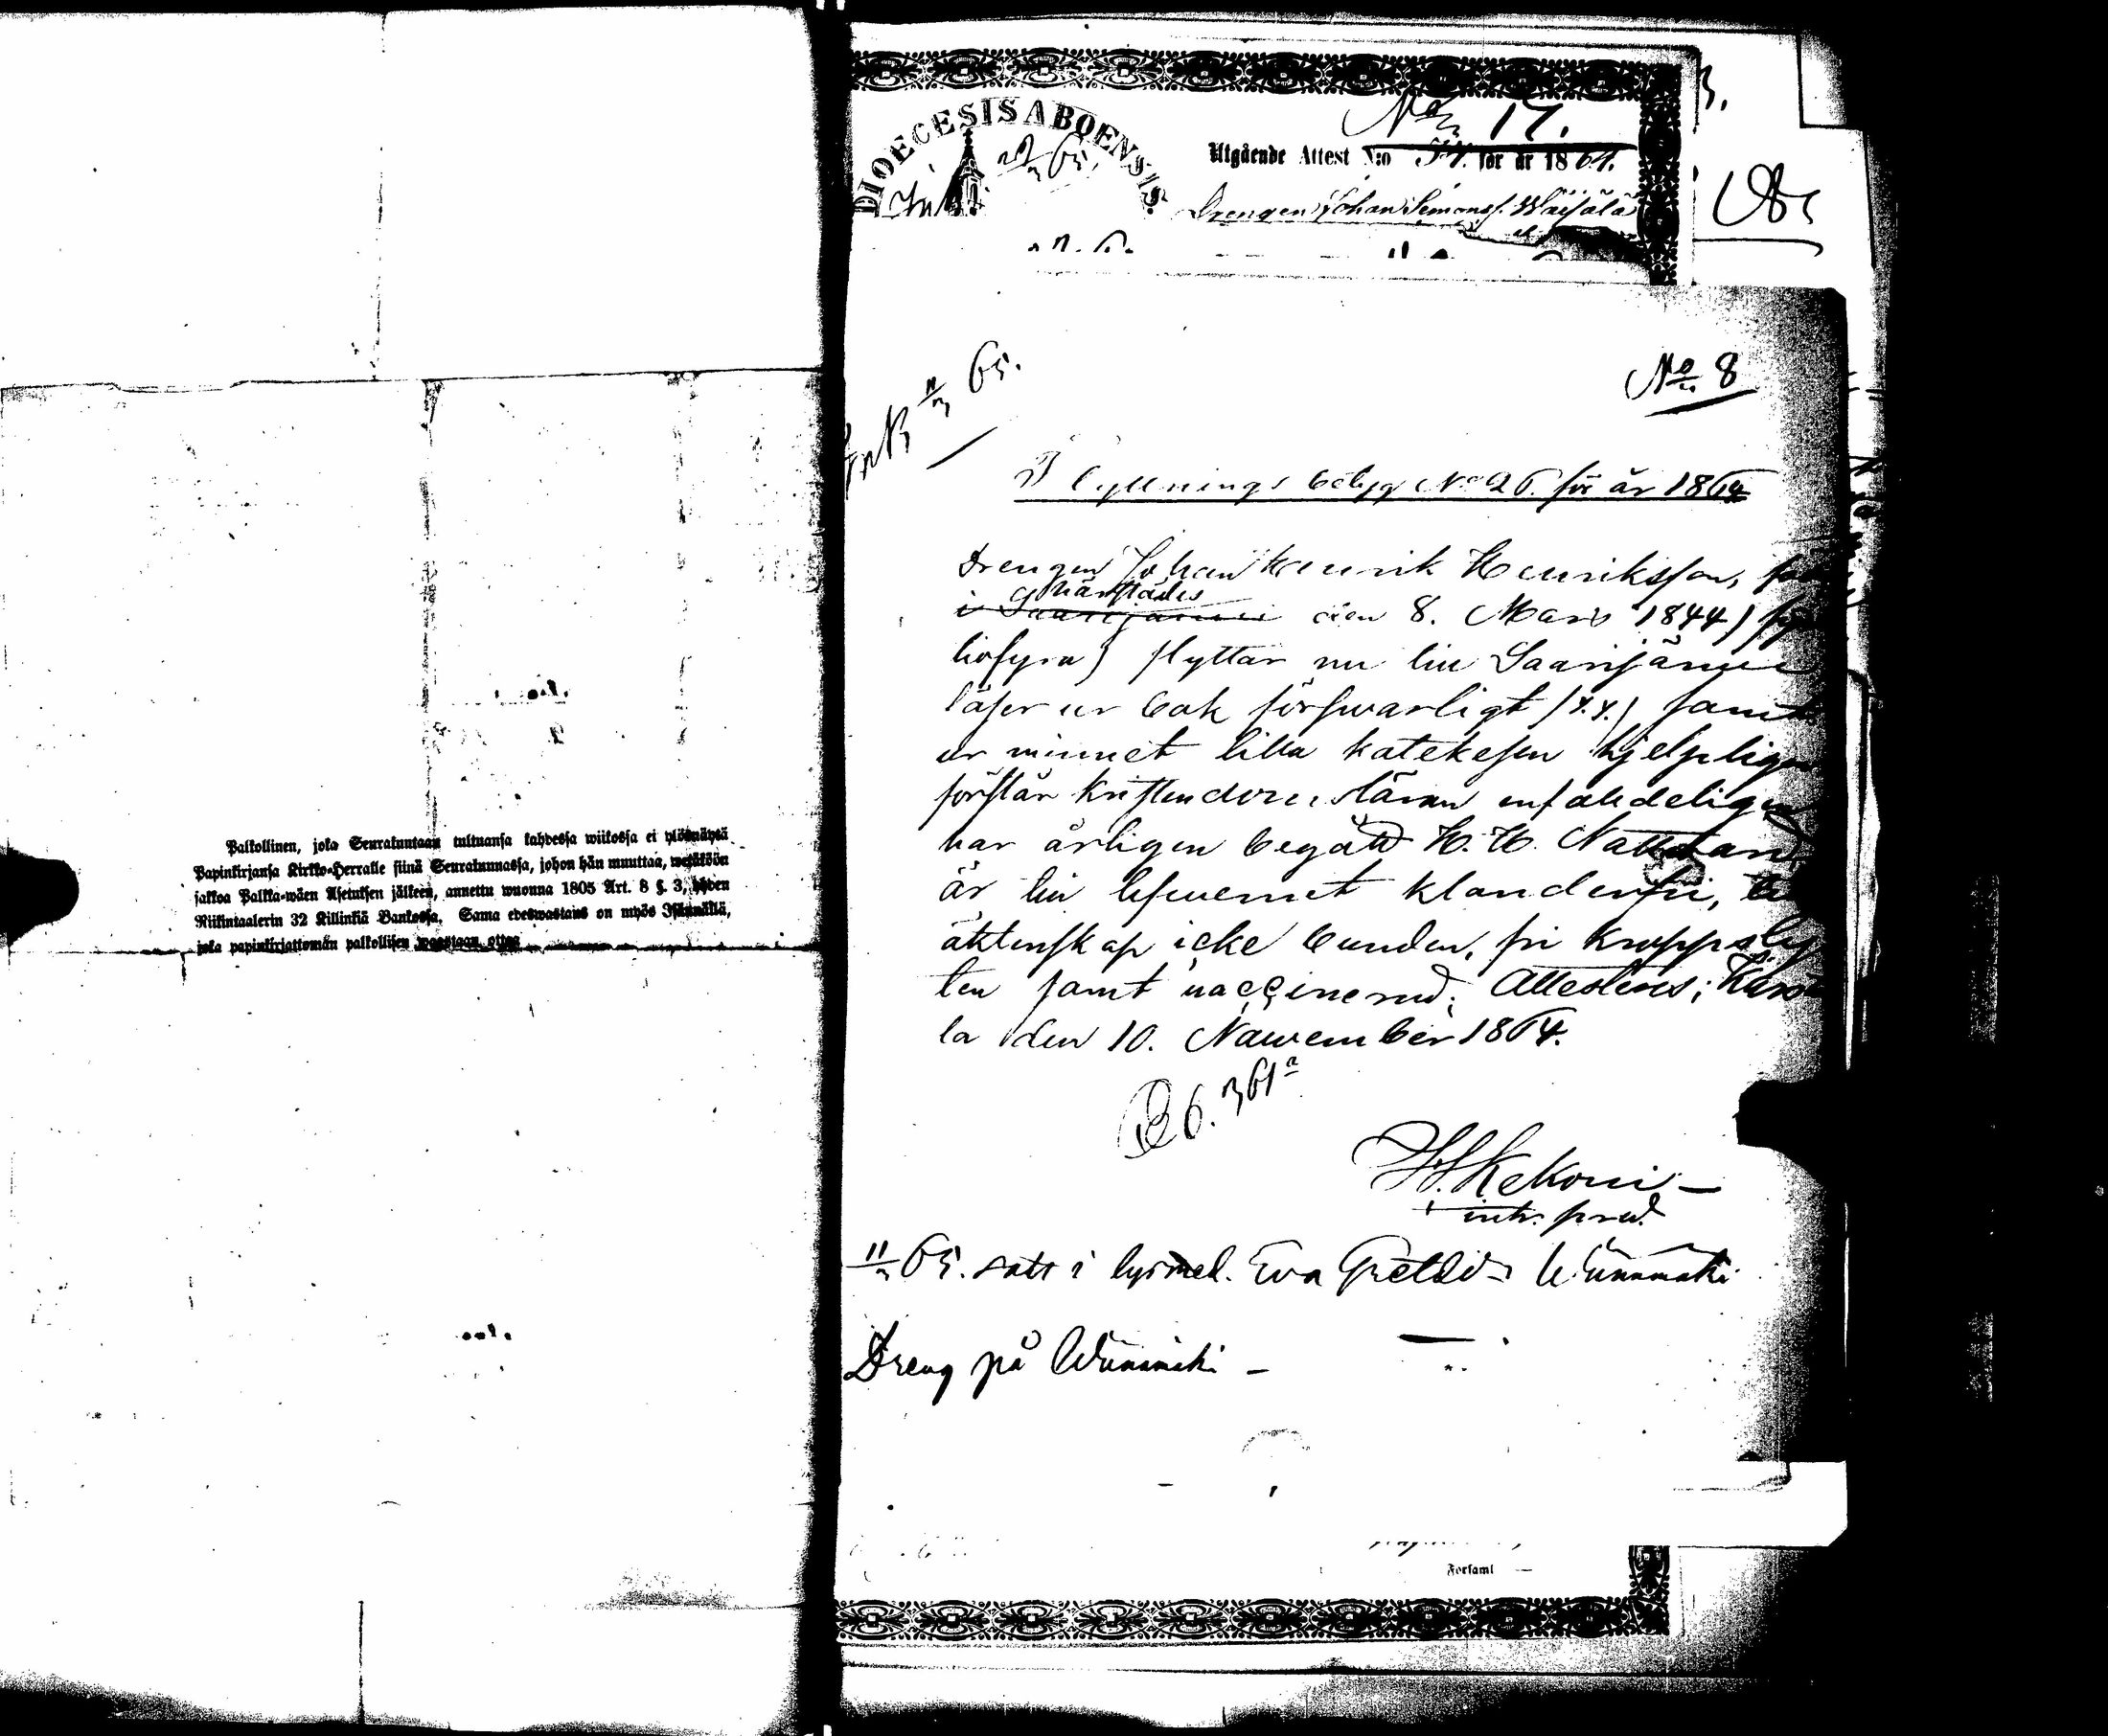 Palkollinen, joka Seurakuntaan tultuansa kahdessa wiikossa ei ylösnäytä
Papinkirjansa Kirkko-Herralle siinä Seurakunnassa, johon hän muuttaa, wetäköön
sakkoa Palkka-wäen Asetuksen jälkeen, annettu wuonna 1805 Art. 8 §. 3, yhden
Riikintaalerin 32 Killinkiä Bankossa. Sama edeswastaus on myös Isännällä,
joka papinkirjattomän palkollisen waastaan ottaa
DIOECESIS ABOENSIS.
No 17.
Utgående Attest N:o 54. för år 1864.
Drengen Johan Simonss. Wäisälä
65.
No 8
Flyttnings betyg No 26. för år 1864
Drengen Johan Henrik Henriksson,
härstädes
i Saarijärwi den 8. Mars 1844)
tiofyra) flyttar nu till Saarijärwi
läser ur bok försvarligt (x.x.) samt
ur minnet lilla katekesen hjelpligen
förstår kristendomsläran enfaldeligen
har årligen begått H. H. Nattvard
är till lefvernet klanderfri,
äktenskap icke bunden, fri kropps ly
ten samt vaccinerad; Attesteras;
la den 10. November 1864.
6. 361
H. Kekoni
intr. pred.
11/3 65. satt i lysn med. Eva
Dreng på
Forsaml